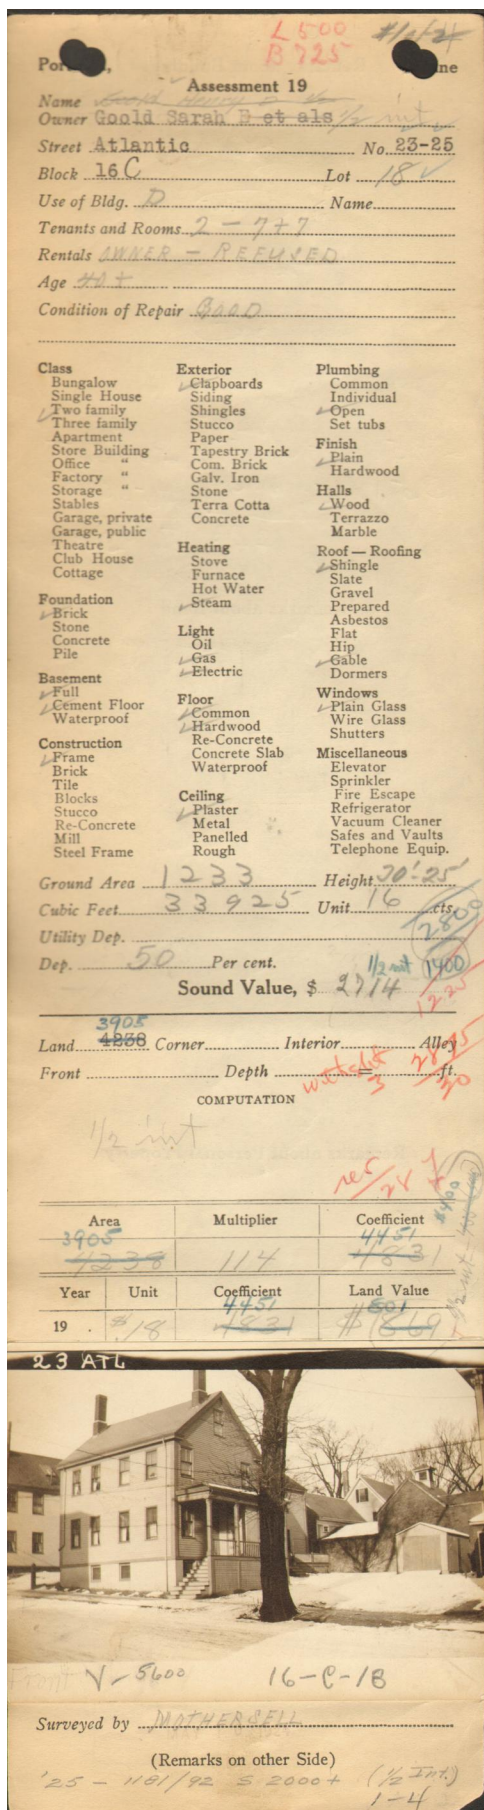 L 500
B 725
Assessment 19
Name
Owner Goold Sarah B et als 1/2 int
Street Atlantic No. 23-25
Block 16 C Lot 18
Use of Bldg. D Name
Tenants and Rooms 2 - 7+7
Rentals OWNER - REFUSED
Age 40 +
Condition of Repair GOOD
Class
Bungalow
Single House
Two family
Three family
Apartment
Store Building
Office "
Factory "
Storage "
Stables
Garage, private
Garage, public
Theatre
Club House
Cottage
Foundation
Brick
Stone
Concrete
Pile
Basement
Full
Cement Floor
Waterproof
Construction
Frame
Brick
Tile
Blocks
Stucco
Re-Concrete
Mill
Steel Frame
Exterior
Clapboards
Siding
Shingles
Stucco
Paper
Tapestry Brick
Com. Brick
Galv. Iron
Stone
Terra Cotta
Concrete
Heating
Stove
Furnace
Hot Water
Steam
Light
Oil
Gas
Electric
Floor
Common
Hardwood
Re-Concrete
Concrete Slab
Waterproof
Ceiling
Plaster
Metal
Panelled
Rough
Plumbing
Common
Individual
Open
Set tubs
Finish
Plain
Hardwood
Halls
Wood
Terrazzo
Marble
Roof — Roofing
Shingle
Slate
Gravel
Prepared
Asbestos
Flat
Hip
Gable
Dormers
Windows
Plain Glass
Wire Glass
Shutters
Miscellaneous
Elevator
Sprinkler
Fire Escape
Refrigerator
Vacuum Cleaner
Safes and Vaults
Telephone Equip.
Ground Area 1233 Height 20'-25'
Cubic Feet 33925 Unit 16 cts.
2800
Utility Dep.
Dep. 50 Per cent. 1/2 int 1400
Sound Value, $ 2714
1225
3905
Land 4238 Corner Interior Alley
Front Depth = ft.
COMPUTATION
1/2 int
Area Multiplier Coefficient
3905 4451
4238 114 4831
Year Unit Coefficient Land Value
4451 801
19 . $.18 4831 $ 869
23 ATL
V - 5600 16-C-18
Surveyed by MOTHERSELL
(Remarks on other Side)
'25 - 1181/92 S 2000+ (1/2 Int.)
1-4